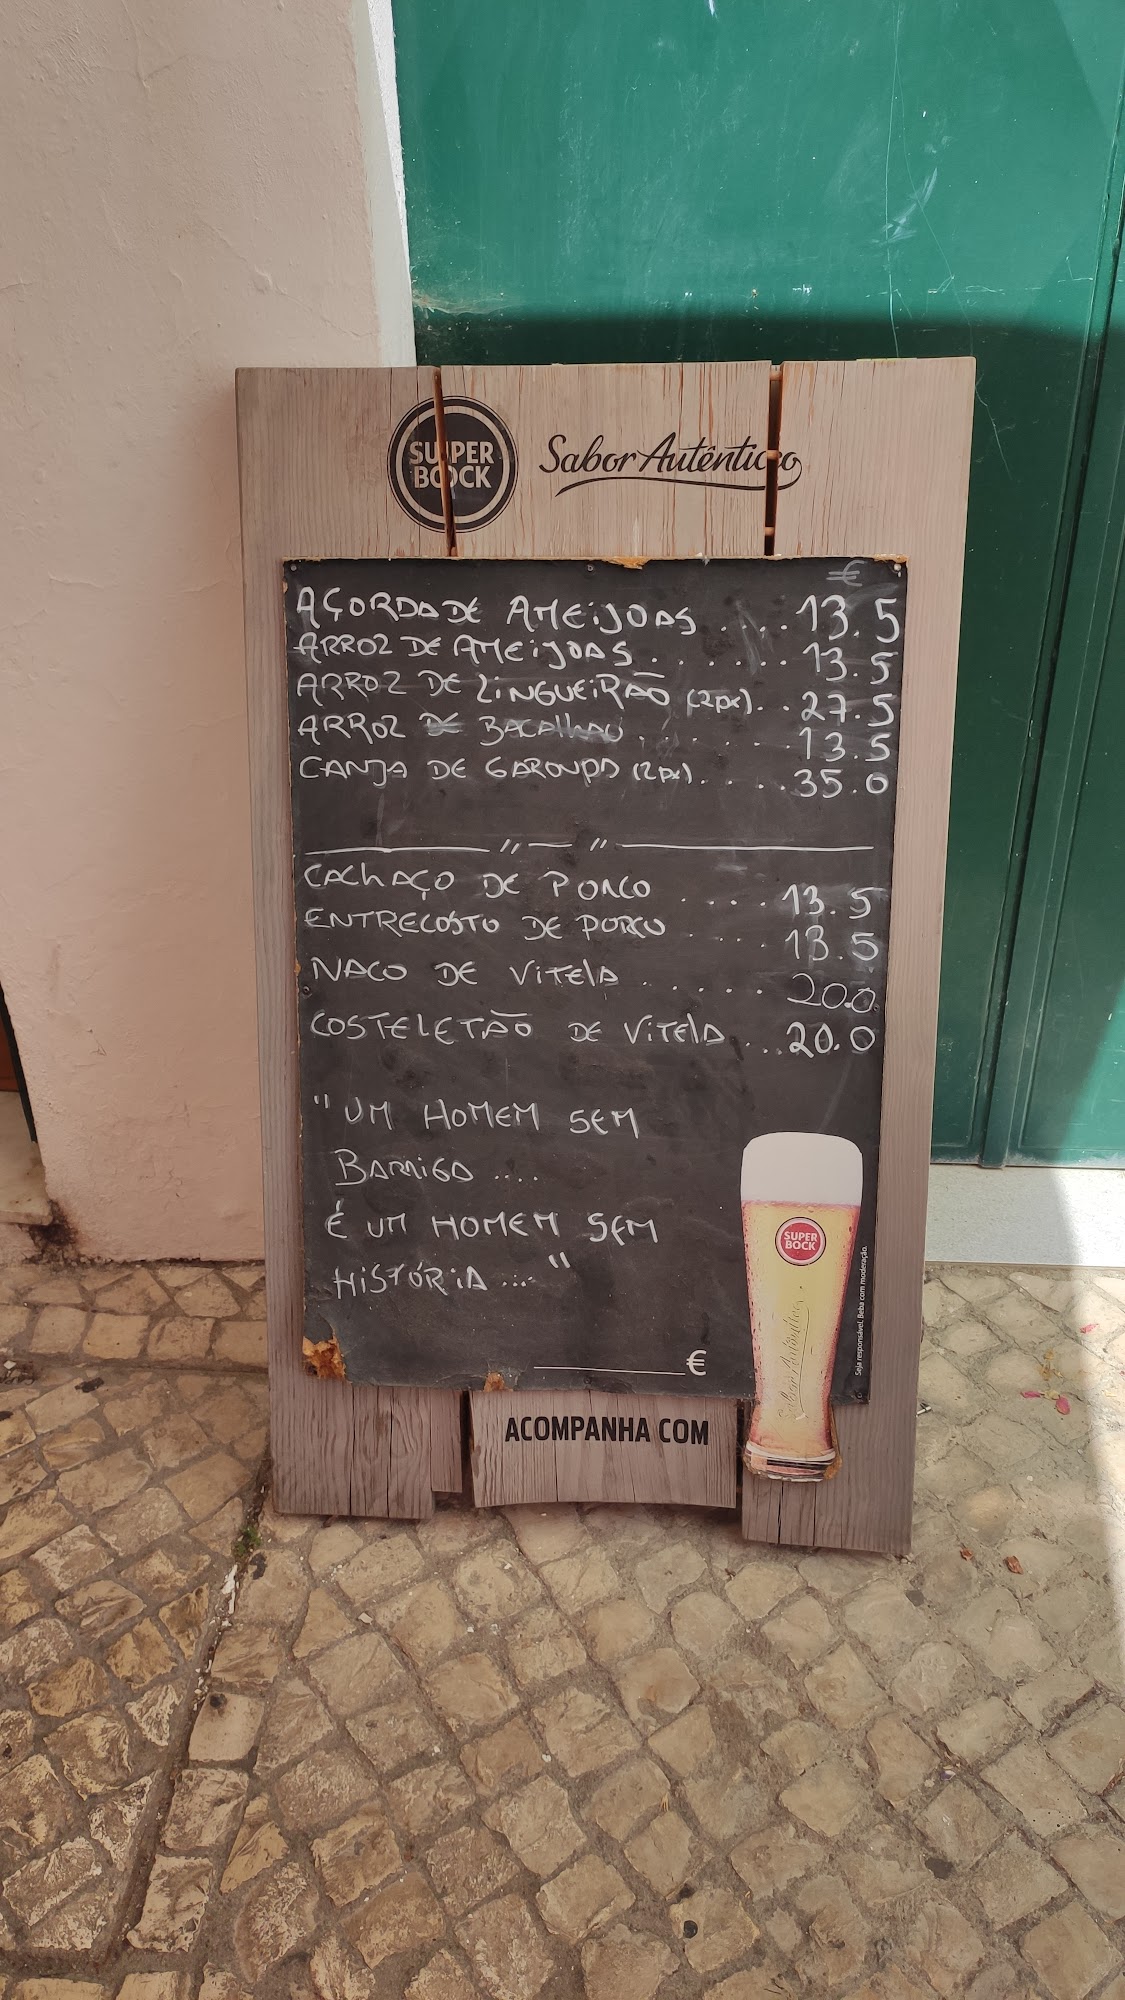 SUPER BOCK Sabor Autêntico
€
AÇORDA DE AMEIJOAS .... 13.5
ARROZ DE AMEIJOAS ....... 13.5
ARROZ DE LINGUEIRÃO (2px). .. 27.5
ARROZ DE BACALHAU ....... 13.5
CANJA DE GAROUPA (2px). .... 35.0
CACHAÇO DE PORCO .... 13.5
ENTRECOSTO DE PORCO .... 13.5
NACO DE VITELA ...... 20.0
COSTELETÃO DE VITELA ... 20.0
"UM HOMEM SEM
BARRIGA ....
É UM HOMEM SEM
HISTÓRIA ...."
SUPER
BOCK
Sabor Autêntico
Seja responsável. Beba com moderação.
€
ACOMPANHA COM